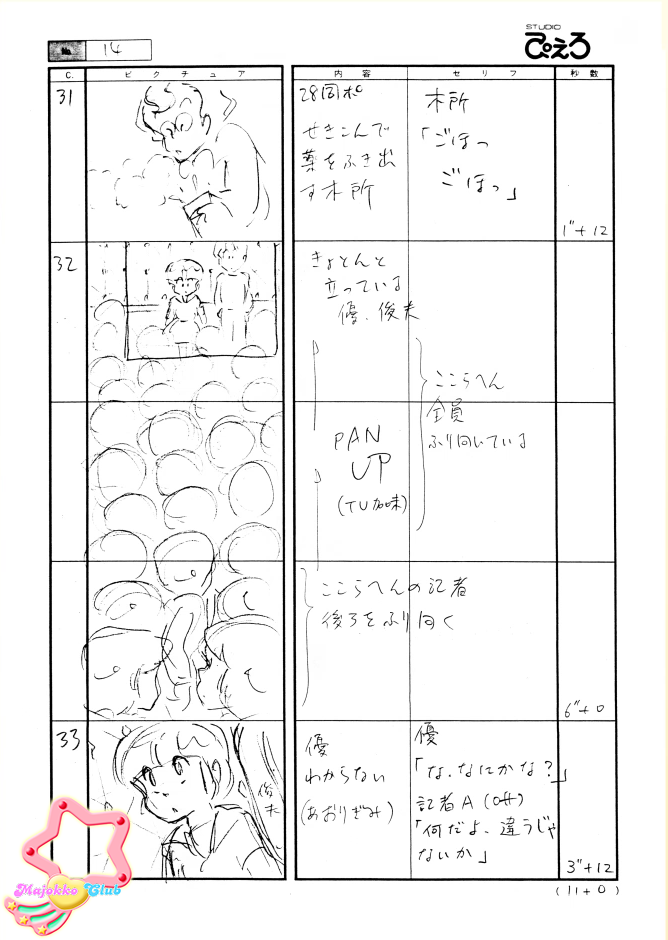 STUDIO
ぴえろ
No. 14
C. ピクチュア 内容 セリフ 秒数
31
28回ポ
せきこんで
薬をふき出
す木所
木所
「ごほっ
ごほっ」
1"+12
32
きょとんと
立っている
優、俊夫
ここらへん
全員
ふり向いている
PAN
UP
(TU加味)
ここらへんの記者
後ろをふり向く
6"+0
33
俊夫
優
わからない
(あおりぎみ)
優
「な、なにかな?」
記者A(off)
「何だよ、違うじゃ
ないか」
3"+12
(11+0)
Majokko Club